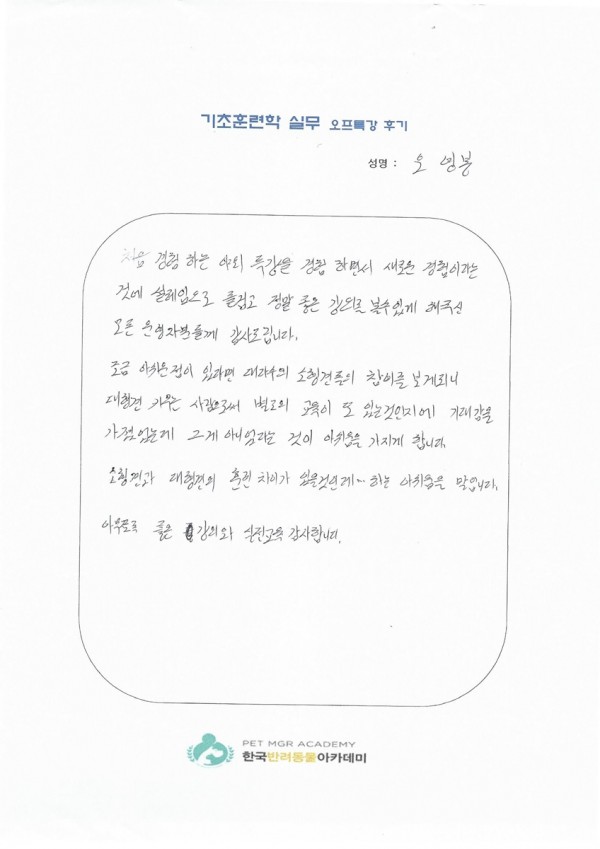 기초훈련학 실무 오프특강 후기
성명 : 오 영봉
처음 경험 하는 야외 특강을 경험 하면서 새로운 경험이라는
것에 설레임으로 즐겁고 정말 좋은 강의를 볼수있게 해주신
모든 운영자분들께 감사드립니다.
조금 아쉬운점이 있다면 대다수의 소형견쪽의 참여를 보게되니
대형견 키우는 사람으로써 별도의 교육이 또 있는것인지에 기대감을
가졌었는데 그게 아니였다는 것이 아쉬움을 가지게 합니다.
소형견과 대형견의 훈련 차이가 있을것인데… 하는 아쉬움을 말입니다.
아무쪼록 좋은 강의와 실전교육 감사합니다.
PET MGR ACADEMY
한국반려동물아카데미